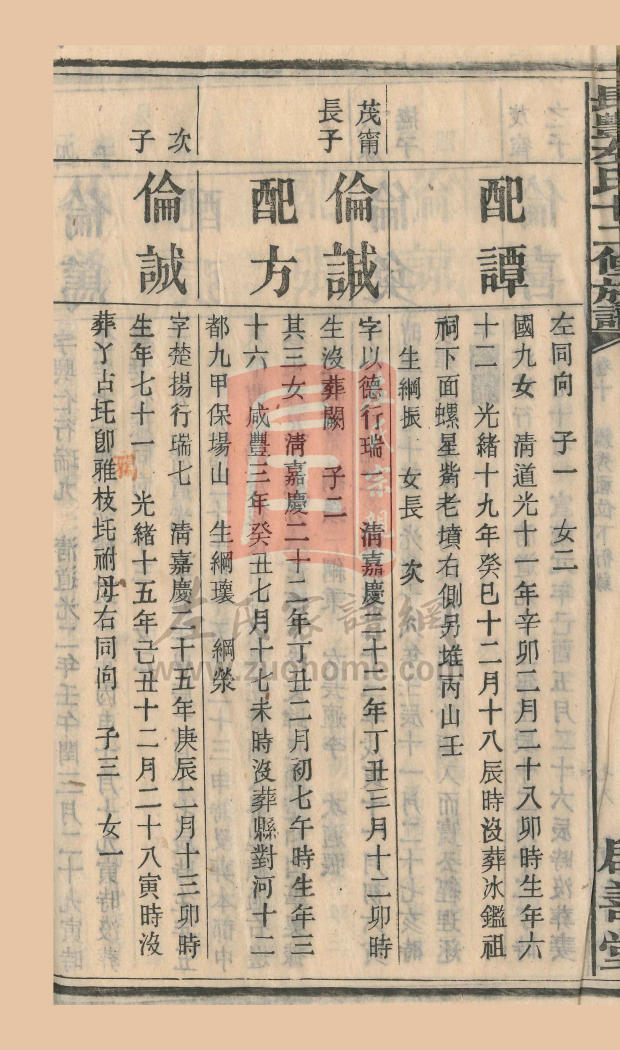 長豐左氏十二修族譜
啟善堂
左同向 子一 女二
配譚
國九女 清道光十一年辛卯二月二十八卯時生年六
十二 光緒十九年癸巳十二月十八辰時沒葬冰鑑祖
祠下面螺星嘴老墳右側另堆丙山壬
生綱振 女長 次
茂甯
長子
倫誠
字以德行瑞一 清嘉慶二十二年丁丑三月十二卯時
生沒葬闕 子二
配方
其三女 清嘉慶二十二年丁丑二月初七午時生年三
十六 咸豐三年癸丑七月十七未時沒葬縣對河十二
都九甲保場山 生綱瓌 綱漿
次
子
倫誠
字楚揚行瑞七 清嘉慶二十五年庚辰二月十三卯時
生年七十一 光緒十五年己丑十二月二十八寅時沒
葬丫占圫卽雅枝圫祔母右同向 子三 女一
左氏家譜網
www.zuohome.com